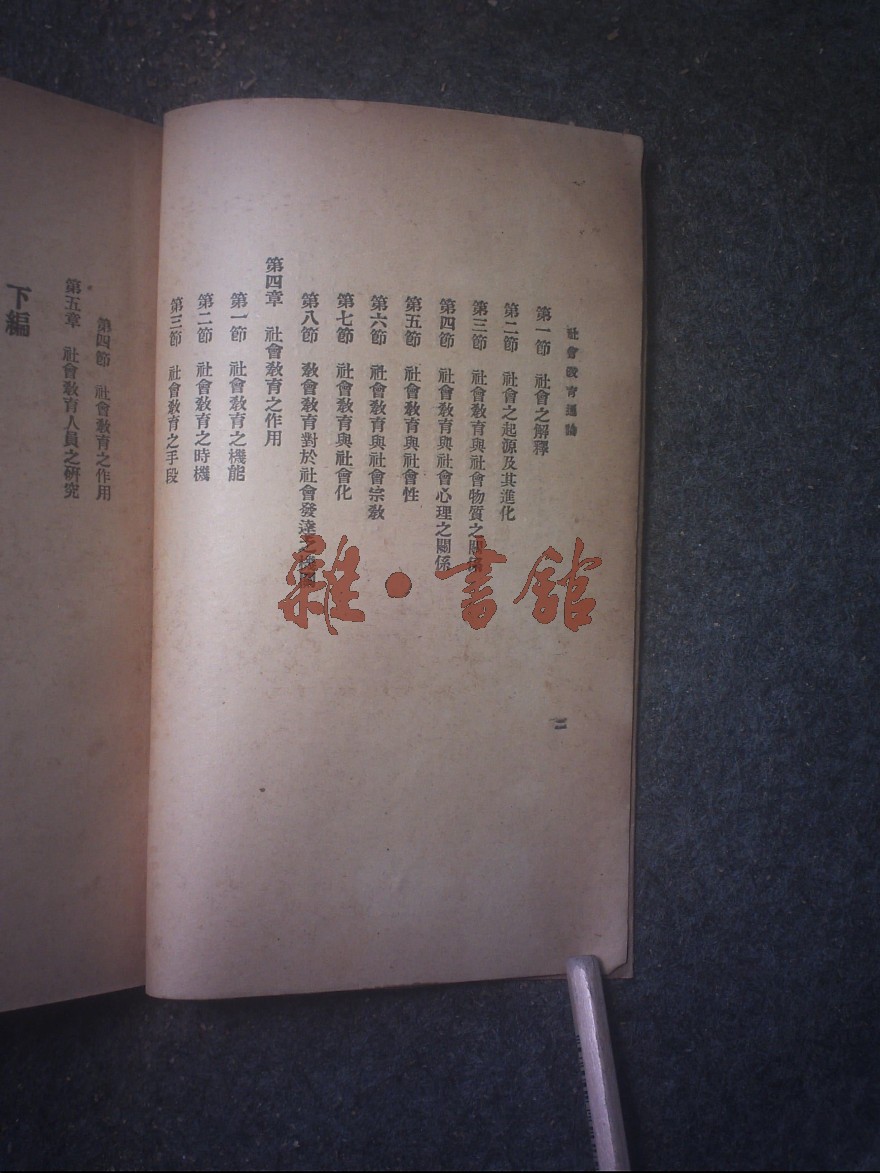 社會敎育通論
第一節　社會之解釋
第二節　社會之起源及其進化
第三節　社會敎育與社會物質之關係
第四節　社會敎育與社會心理之關係
第五節　社會敎育與社會性
第六節　社會敎育與社會宗敎
第七節　社會敎育與社會化
第八節　敎會敎育對於社會發達之
第四章　社會敎育之作用
第一節　社會敎育之機能
第二節　社會敎育之時機
第三節　社會敎育之手段
二
第四節　社會敎育之作用
第五章　社會敎育人員之硏究
下編
雜·書館